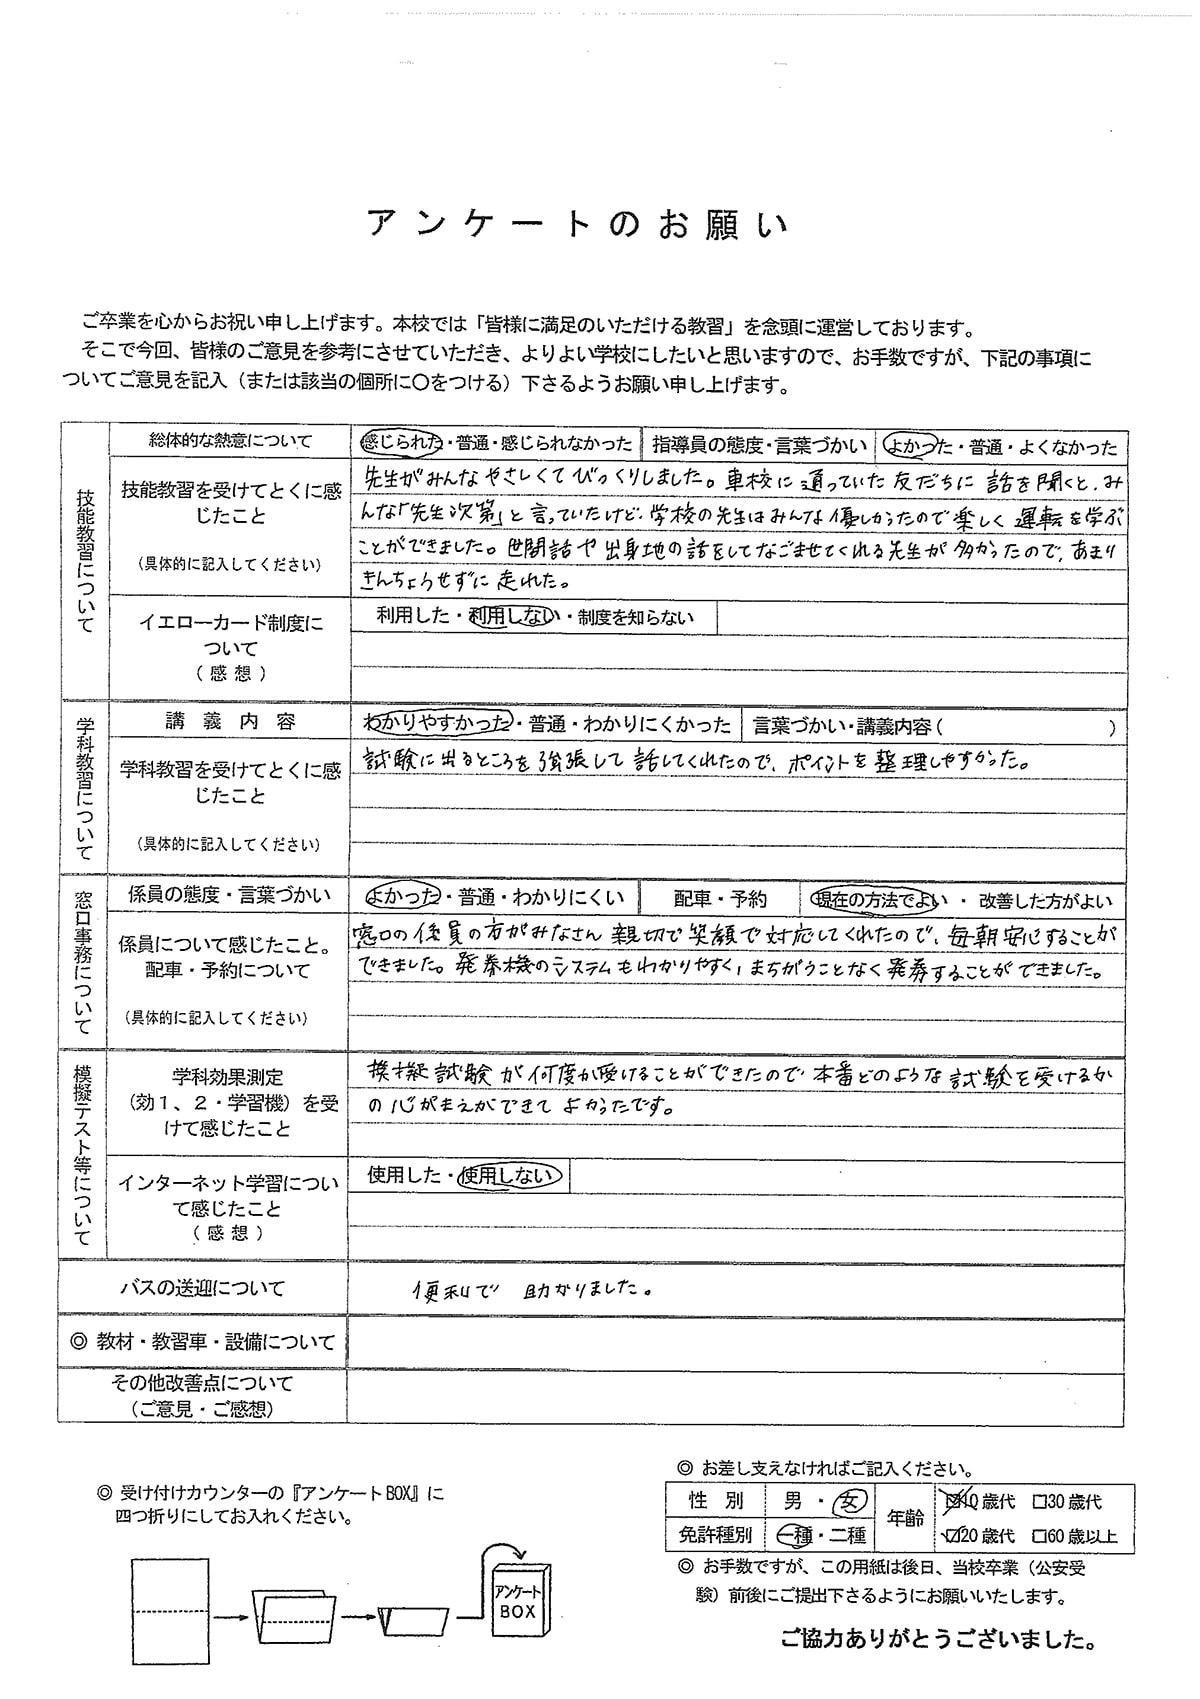 アンケートのお願い
ご卒業を心からお祝い申し上げます。本校では「皆様に満足のいただける教習」を念頭に運営しております。
そこで今回、皆様のご意見を参考にさせていただき、よりよい学校にしたいと思いますので、お手数ですが、下記の事項に
ついてご意見を記入（または該当の個所に○をつける）下さるようお願い申し上げます。
技能教習について
総体的な熱意について
感じられた・普通・感じられなかった
指導員の態度・言葉づかい
よかった・普通・よくなかった
技能教習を受けてとくに感
じたこと
（具体的に記入してください）
先生がみんなやさしくてびっくりしました。車校に通っていた友だちに話を聞くと、み
んな「先生次第」と言っていたけど、学校の先生はみんな優しかったので楽しく運転を学ぶ
ことができました。世間話や出身地の話をしてなごませてくれる先生が多かったので、あまり
きんちょうせずに走れた。
イエローカード制度に
ついて
（感想）
利用した・利用しない・制度を知らない
学科教習について
講義内容
わかりやすかった・普通・わかりにくかった
言葉づかい・講義内容（　）
学科教習を受けてとくに感
じたこと
（具体的に記入してください）
試験に出るところを強張して話してくれたので、ポイントを整理しやすかった。
窓口事務について
係員の態度・言葉づかい
よかった・普通・わかりにくい
配車・予約
現在の方法でよい・改善した方がよい
係員について感じたこと。
配車・予約について
（具体的に記入してください）
窓口の係員の方がみなさん親切で笑顔で対応してくれたので、毎朝安心することが
できました。発券機のシステムもわかりやすく、まちがうことなく発券することができました。
模擬テスト等について
学科効果測定
（効１、２・学習機）を受
けて感じたこと
模擬試験が何度か受けることができたので本番どのような試験を受けるか
の心がまえができてよかったです。
インターネット学習につい
て感じたこと
（感想）
使用した・使用しない
バスの送迎について
便利で助かりました。
◎ 教材・教習車・設備について
その他改善点について
（ご意見・ご感想）
◎ 受け付けカウンターの『アンケートBOX』に
四つ折りにしてお入れください。
アンケート
BOX
◎ お差し支えなければご記入ください。
性別
男・女
年齢
□10歳代 □30歳代
免許種別
一種・二種
□20歳代 □60歳以上
◎ お手数ですが、この用紙は後日、当校卒業（公安受
験）前後にご提出下さるようにお願いいたします。
ご協力ありがとうございました。